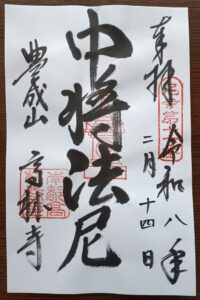 奉拝
令和八年
二月十四日
中将法尼
豊成山
高林寺